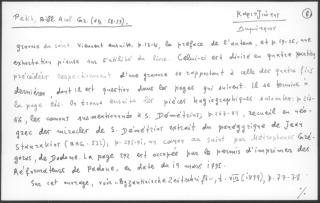 Petit, Bibl. Acol. Gr. (pp. 58-59).
Dapontes
gravure du saint viennent ensuite, p. 12-16, la préface de l'auteur, et p. 17-26, une
exhortation pieuse sur l'utilité du livre. Celui-ci est divisé en quatre parties
précédées respectivement d'une gravure se rapportant à celle des quatre fins
dernières, dont il est question dans les pages qui suivent. Il se termine à
la page 262. On trouve ensuite les pièces hagiographiques suivantes: p. 263-
66, les canons susmentionnés à S. Démétrius; p. 267-84, recueil en néo-
grec des miracles de S. Démétrius extrait du panégyrique de Jean
Stauracius (BHG. 532); p. 285-91, un canon au saint par Métrophane Gré-
goras, de Dodone. La page 292 est occupée par le permis d'imprimer des
Réformateurs de Padoue, en date du 19 mars 1775.
Sur cet ouvrage, voir «Byzantinische Zeitschrift», t. VIII (1899), p. 77-78